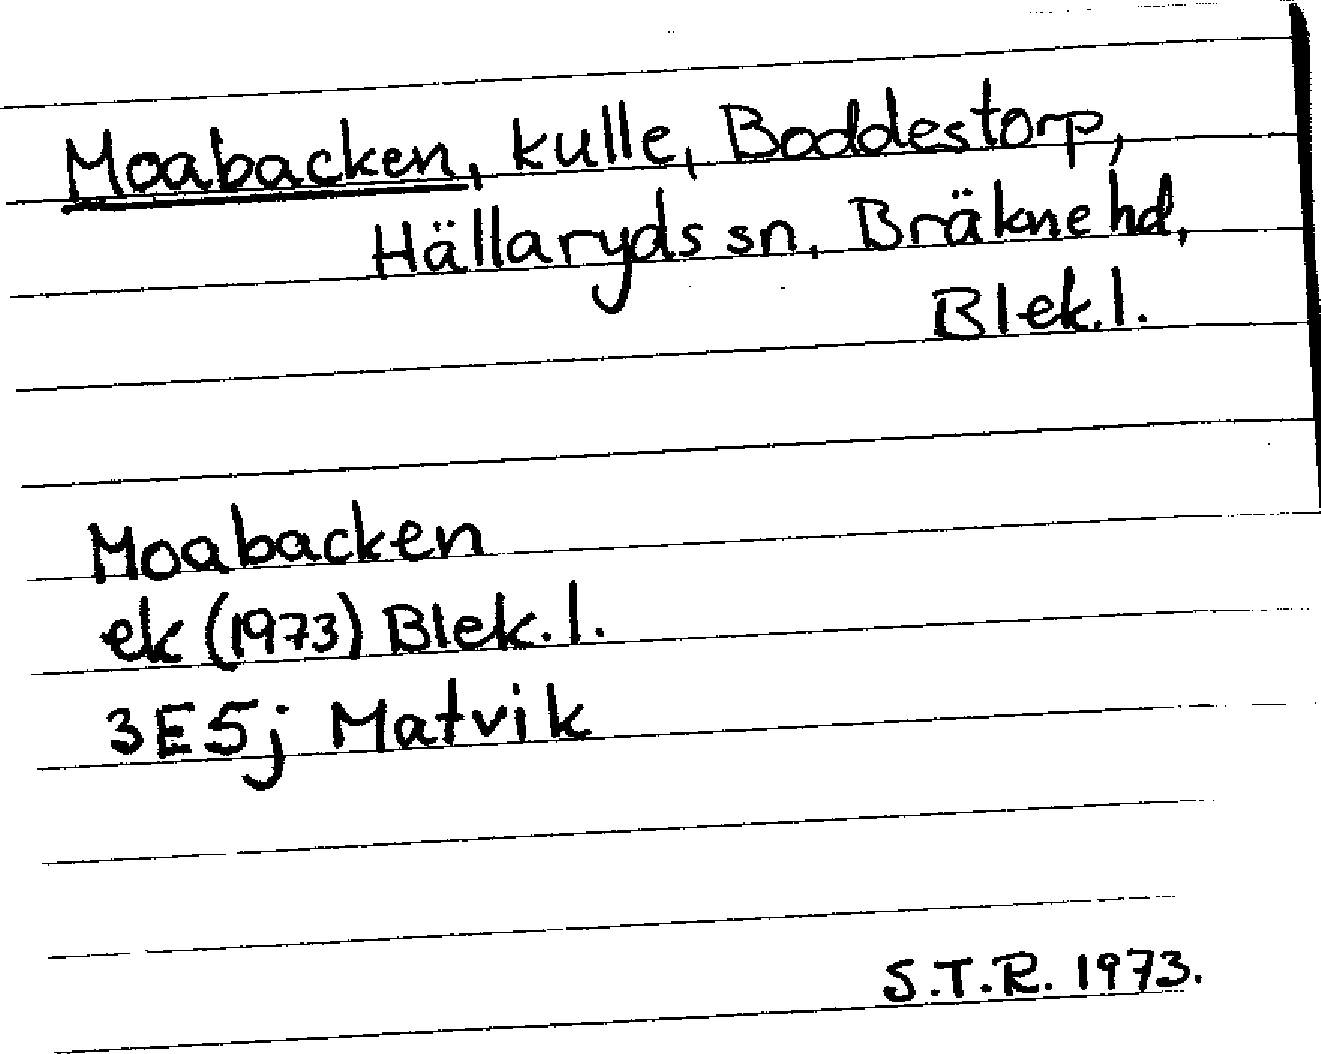 Moabacken, kulle, Boddestorp,
Hällaryds sn, Bräkne hd,
Blek.l.
Moabacken
ek (1973) Blek.l.
3E5j Matvik
S.T.R. 1973.